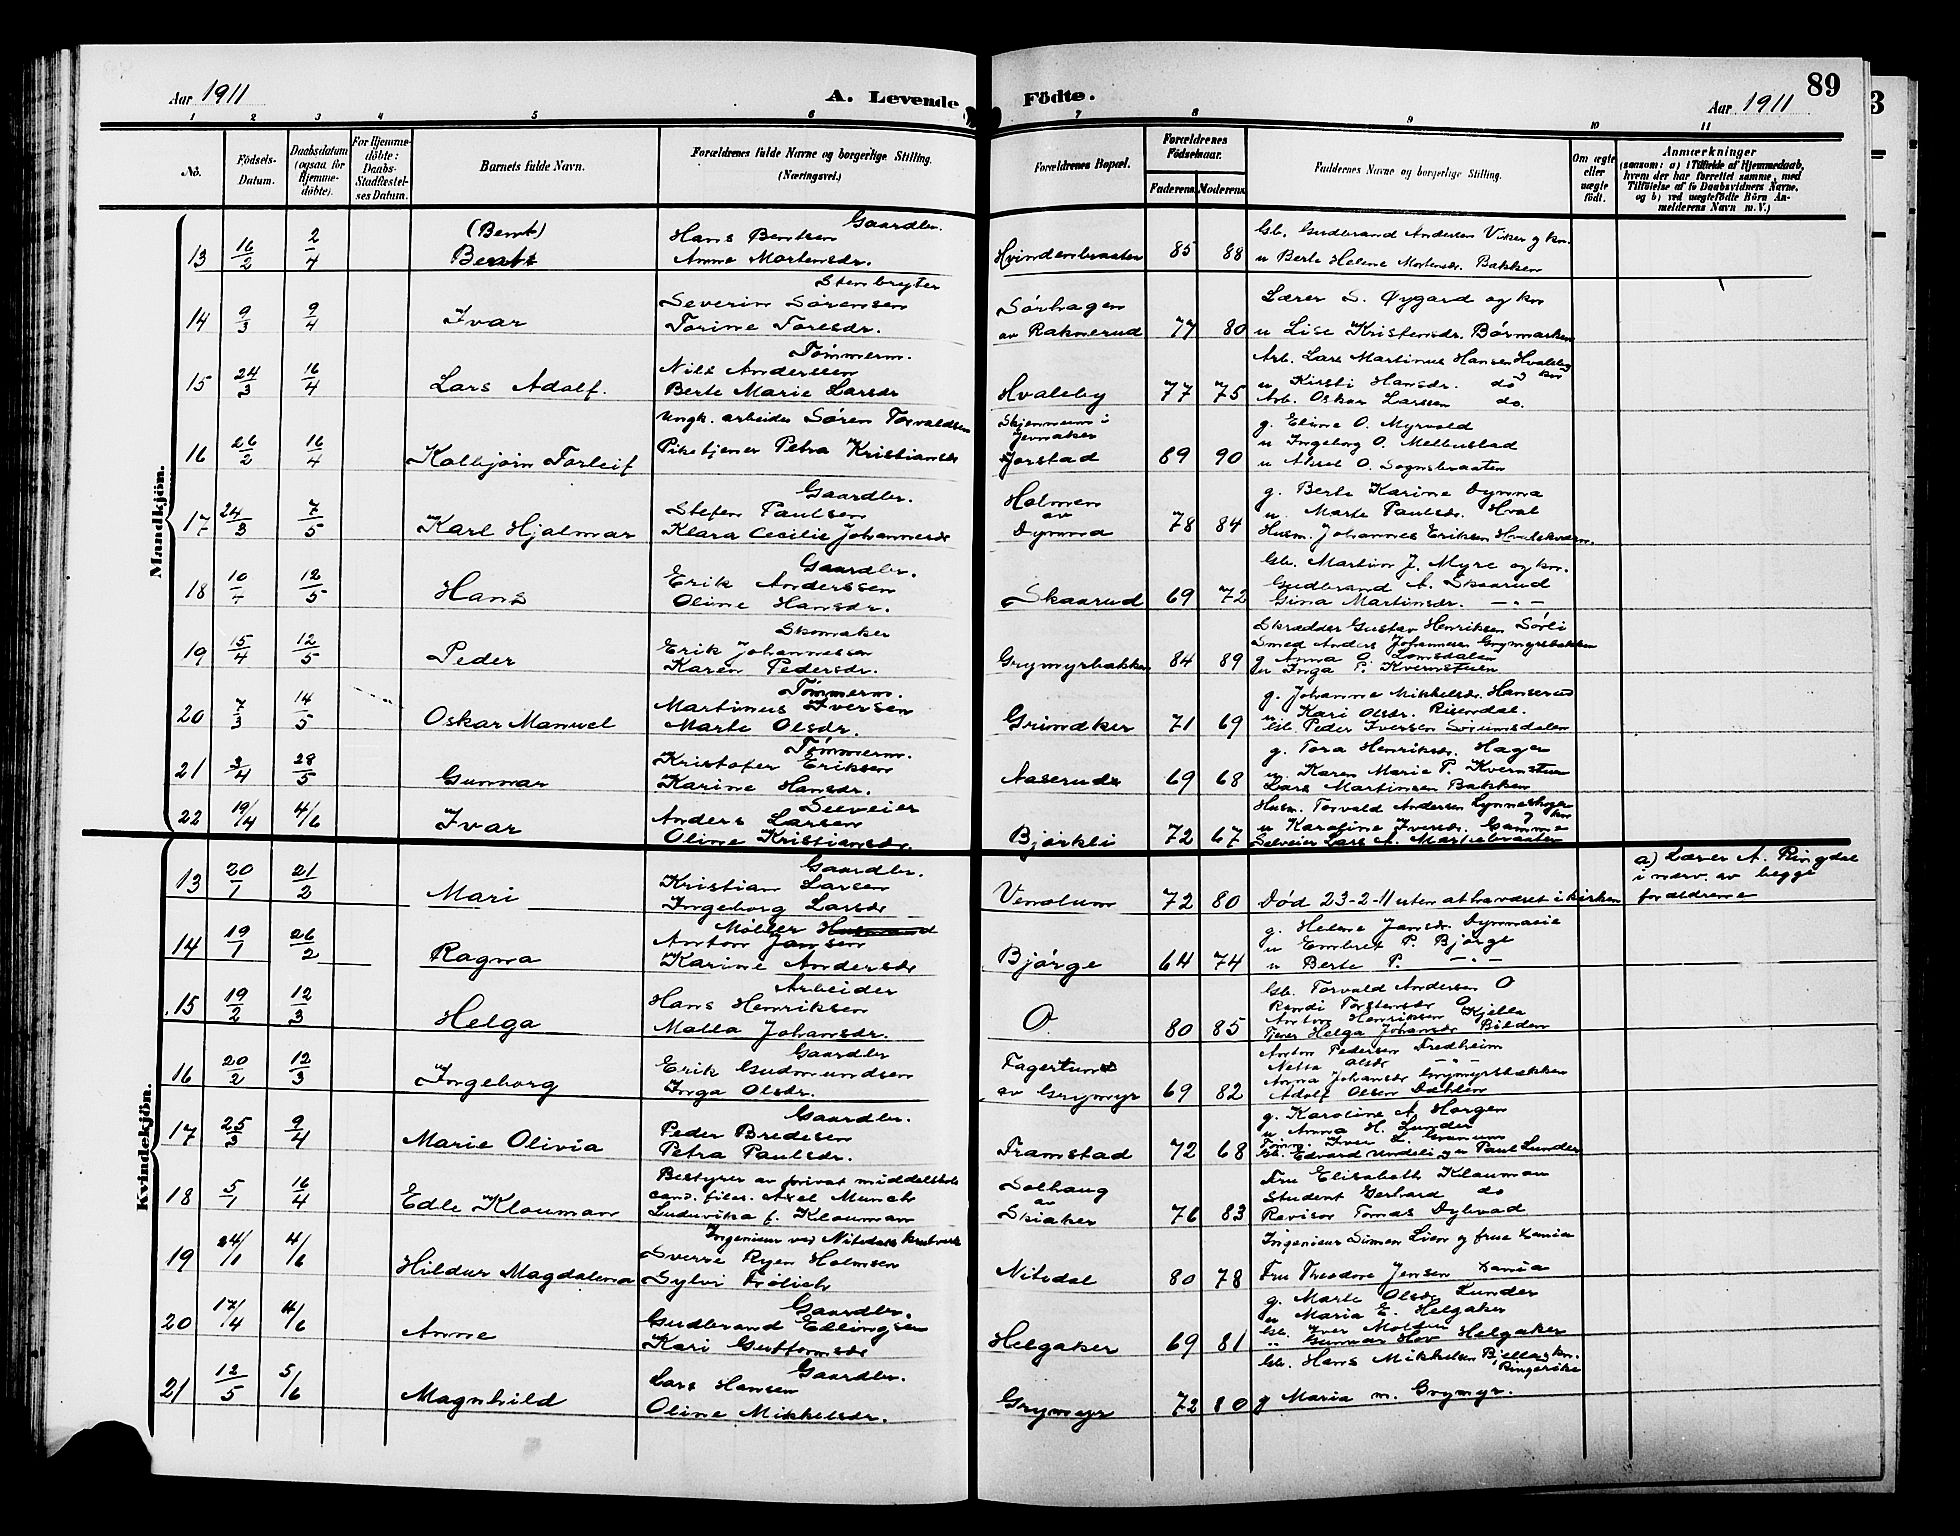 Aar 1911
A. Levende
Födte.
Aar 1911
89
3
1 2 3 4 5 6 7 8 9 10 11
No.
Födsels-Datum.
Daabsdatum (ogsaa for Hjemme-döbte).
For Hjemme-döbte: Daabs-Stadfæstel-ses Datum.
Barnets fulde Navn.
Forældrenes fulde Navne og borgerlige Stilling.
(Næringsvei.)
Forældrenes Bopæl.
Forældrenes Födselsaar.
Faderens. Moderens.
Faddernes Navne og borgerlige Stilling.
Om ægte eller uægte födt.
Anmærkninger
(saasom: a) i Tilfælde af Hjemmedaab,
hvem der har forrettet samme, med
Tilföielse af to Daabsvidners Navne.
og b) ved uægtefödte Börn An-
melderens Navn m. V.)
Mandkjön.
13 16/2 2/4 (Bernt) Gaardbr. Hans Berntsen Anne Mortensdr. Hvindenbraaten 85 88
Gb. Gudbrand Andersen Viker og kn.
u Berte Helene Mortensdr. Bakken
14 9/3 9/4 Ivar Stenbryter Severin Sørensen Torine Toresdr. Sørhagen av Raknerud 77 80
Lærer S. Øygard og kn
u Lise Kristensdr. Børmarken
15 24/3 16/4 Lars Adolf. Tømmerm. Nils Anderssen Berte Marie Larsdr Hvaleby 77 75
Arb. Lars Martinus Hansen Hvaleby og kn
u Kirsti Hansdr. do
Arb. Oskar Larssen do.
16 26/2 16/4 Kolbjørn Torleif Ungk. arbeider Søren Torvaldsen Pike tjener Petra Kristiansdr Skjennum i Jevnaker Jorstad 89 90
g. Eline O. Myrvold
u Ingeborg O. Melbustad
u Aksel O. Sognsbraaten
17 24/3 7/5 Karl Hjalmar Gaardbr. Stefen Paulsen Klara Cecilie Johannesdr Holmen av Dynna 78 84
g. Berte Karine Dynna
u. Marte Paulsdr. Hval
Husm. Johannes Eriksen Hvalskvern.
18 Hans 12/5 Gaardbr. Erik Anderssen Oline Hansdr. Skaarud 69 72
Gb. Martin J. Myre og kn.
Gudbrand A. Skaarud
Gina Martinsdr. — „ —
19 15/4 12/5 Peder Skomaker Erik Johannessen Karen Pedersdr. Grymyrbakken 84 89
Skrædder Gustav Henriksen Sørli
Smed Anders Johannesen Grymyrbakken
g Anna O. Lomsdalen
u Inga P. Kvernstuen
20 7/3 14/5 Oskar Manuel Tømmerm. Martinus Iversen Marte Olsdr. Grindaker 71 69
g. Johanne Mikkelsdr. Hanserud
u Kari Olsdr. Risendal.
Gb. Peder Iversen Sørumsdalen
21 3/4 28/5 Gunnar Tømmerm. Kristofer Eriksen Karine Hansdr. Aaserud 69 68
g. Tora Henriksdr. Hagen
u. Karen Marie P. Kvernstuen
Lars Martinsen Bakken
22 19/4 4/6 Ivar Selveier Anders Larsen Oline Kristiansdr. Bjørkli 72 67
Husm. Torvald Andersen Lynneshagen og kn
u Karoline Iversdr. Gamme
Selveier Lars A.
Kvindekjön.
13 20/1 21/2 Mari Gaardbr. Kristian Larsen Ingeborg Larsdr Venolum 72 80
Død 23-2-11 uten at ha været i kirken
a) Lærer A. Ringdal
i nærv. av begge
forældrene
14 19/1 26/2 Ragna Møller Anton Jansen Karine Andersdr Bjørge 64 74
g. Helene Jansdr. Dynnaeie
u Embret P. Bjørge
u Berte P. — „ —
15 19/2 12/3 Helga Arbeider Hans Henriksen Malla Johansdr. O. 80 85
Gb. Torvald Andersen O
Randi Torstensdr O
Anton Henriksen Kjella
Tjener Helga Johansdr Bilden
16 20/2 12/3 Ingeborg Gaardbr Erik Gudmundsen Inga Olsdr. Fagertun av Grymyr 69 82
Anton Pedersen Fredheim
Netta Olsdr — „ —
Anna Johansdr Grymyrbakken
Adolf Olsen Dahlen
17 25/3 9/4 Marie Olivia Gaardbr. Peder Bredesen Petra Paulsdr. Framstad 72 68
g. Karoline A Horgen
u. Anna H. Lunder
Tømm. Iver L. Granum
Gb. Edvard Undeli og u Paul Lunder
18 5/1 16/4 Edle Klouman Bestyrer av privat middelskole cand. filos. Axel Munch Luduvika f. Klouman Solhaug av Skiaker 76 83
Fru Elisabeth Klouman
Student Gerhard do
Revisor Tomas Dybvad
19 24/1 4/6 Hildur Magdalena Ingeniør ved Nitedals krutverk Sverre Ryen Holmsen Sylvi Frølich Nitedal 80 78
Ingeniør Simen Lien og frue Xania
Fru Theodore Jensen Xania
20 17/4 4/6 Anne Gaardbr. Gudbrand Edlingsen Kari Guttormsdr Helgaker 69 81
g. Marte Olsdr Lunder
u Maria E. Helgaker
Gb. Iver Molden
„ Gunnar Hov Helgaker
21 12/5 5/6 Magnhild Gaardbr. Lars Hansen Oline Mikkelsdr. Grymyr 72 80
Gb. Hans Mikkelsen Bjella og kn. Ringerike
g Maria m. Grymyr.